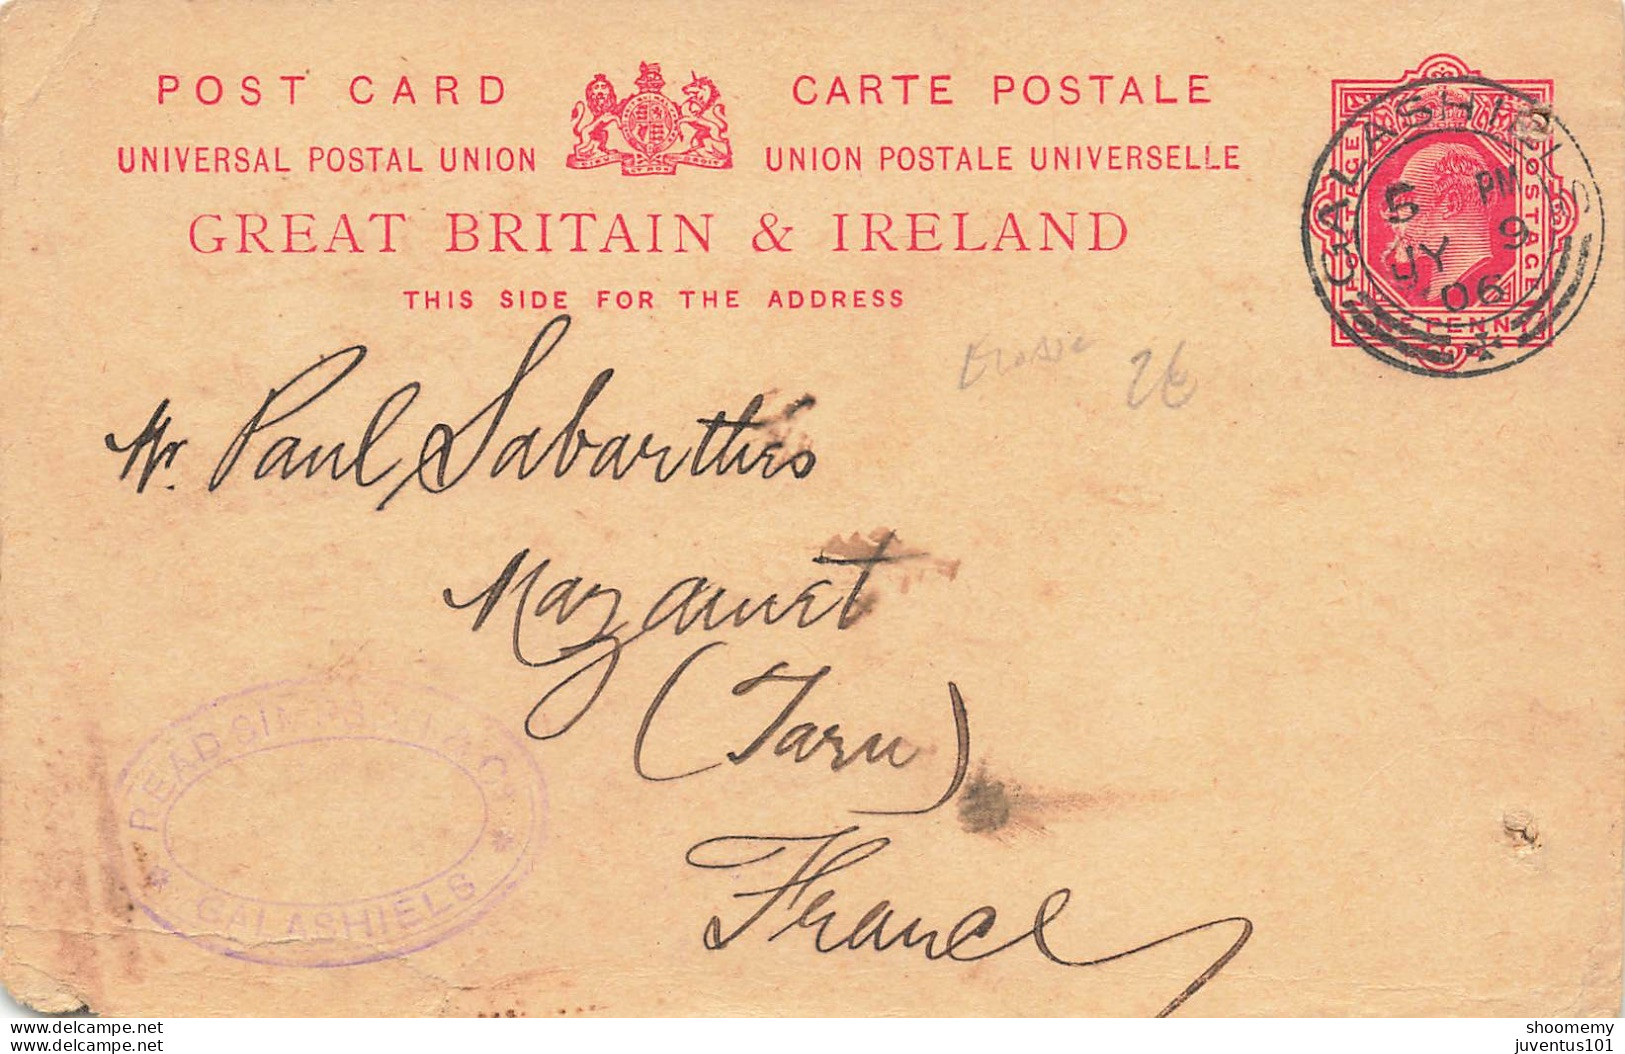 POST CARD
CARTE POSTALE
UNIVERSAL POSTAL UNION
UNION POSTALE UNIVERSELLE
GREAT BRITAIN & IRELAND
THIS SIDE FOR THE ADDRESS
POSTAGE POSTAGE
ONE PENNY
GALASHIELS
5 PM
JY 9
06
Mr. Paul Sabarthès
Mazamet
(Tarn)
France
2€
READ SIMPSON & Co.
* GALASHIELS *
www.delcampe.net
www.delcampe.net
shoomemy
juventus101